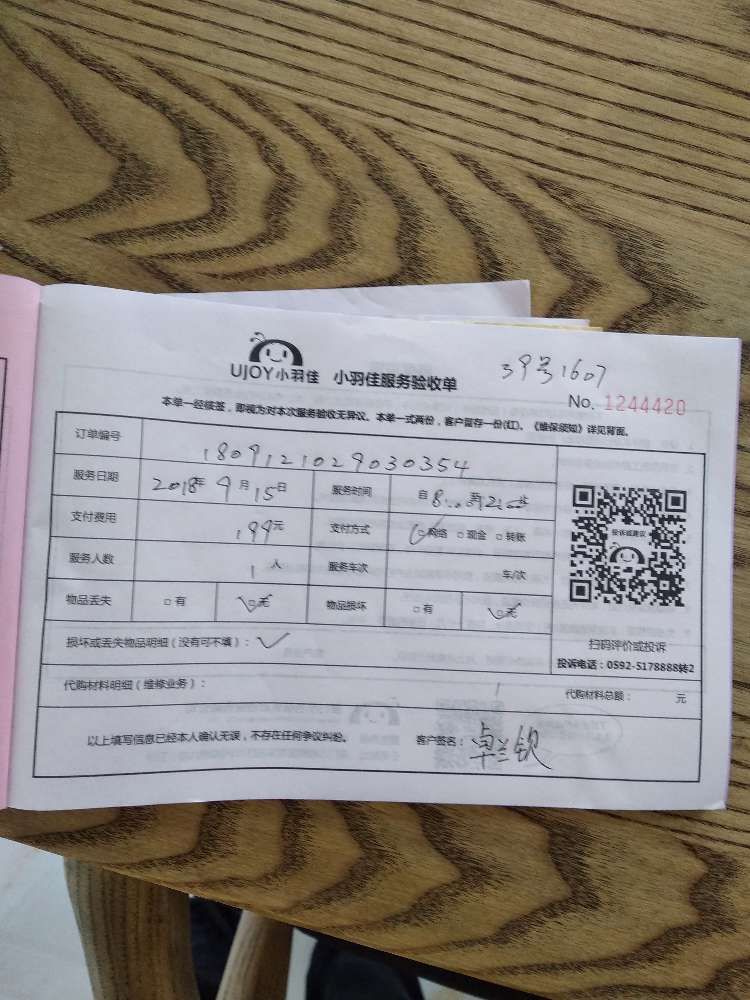 39号1607
UJOY小羽佳 小羽佳服务验收单
No. 1244420
本单一经核签，即视为对本次服务验收无异议。本单一式两份，客户留存一份(红)。《维保须知》详见背面。
订单编号 180912102903035​4
服务日期 2018年9月15日 服务时间 自8:00至12:00止
支付费用 199元 支付方式 □网络 □现金 □转账
服务人数 1人 服务车次 车/次
物品丢失 □有 □无 物品损坏 □有 □无
损坏或丢失物品明细（没有可不填）：
代购材料明细（维修业务）： 代购材料总额： 元
以上填写信息已经本人确认无误，不存在任何争议纠纷。 客户签名：卓兰钦
投诉或建议
扫码评价或投诉
投诉电话：0592-5178888转2